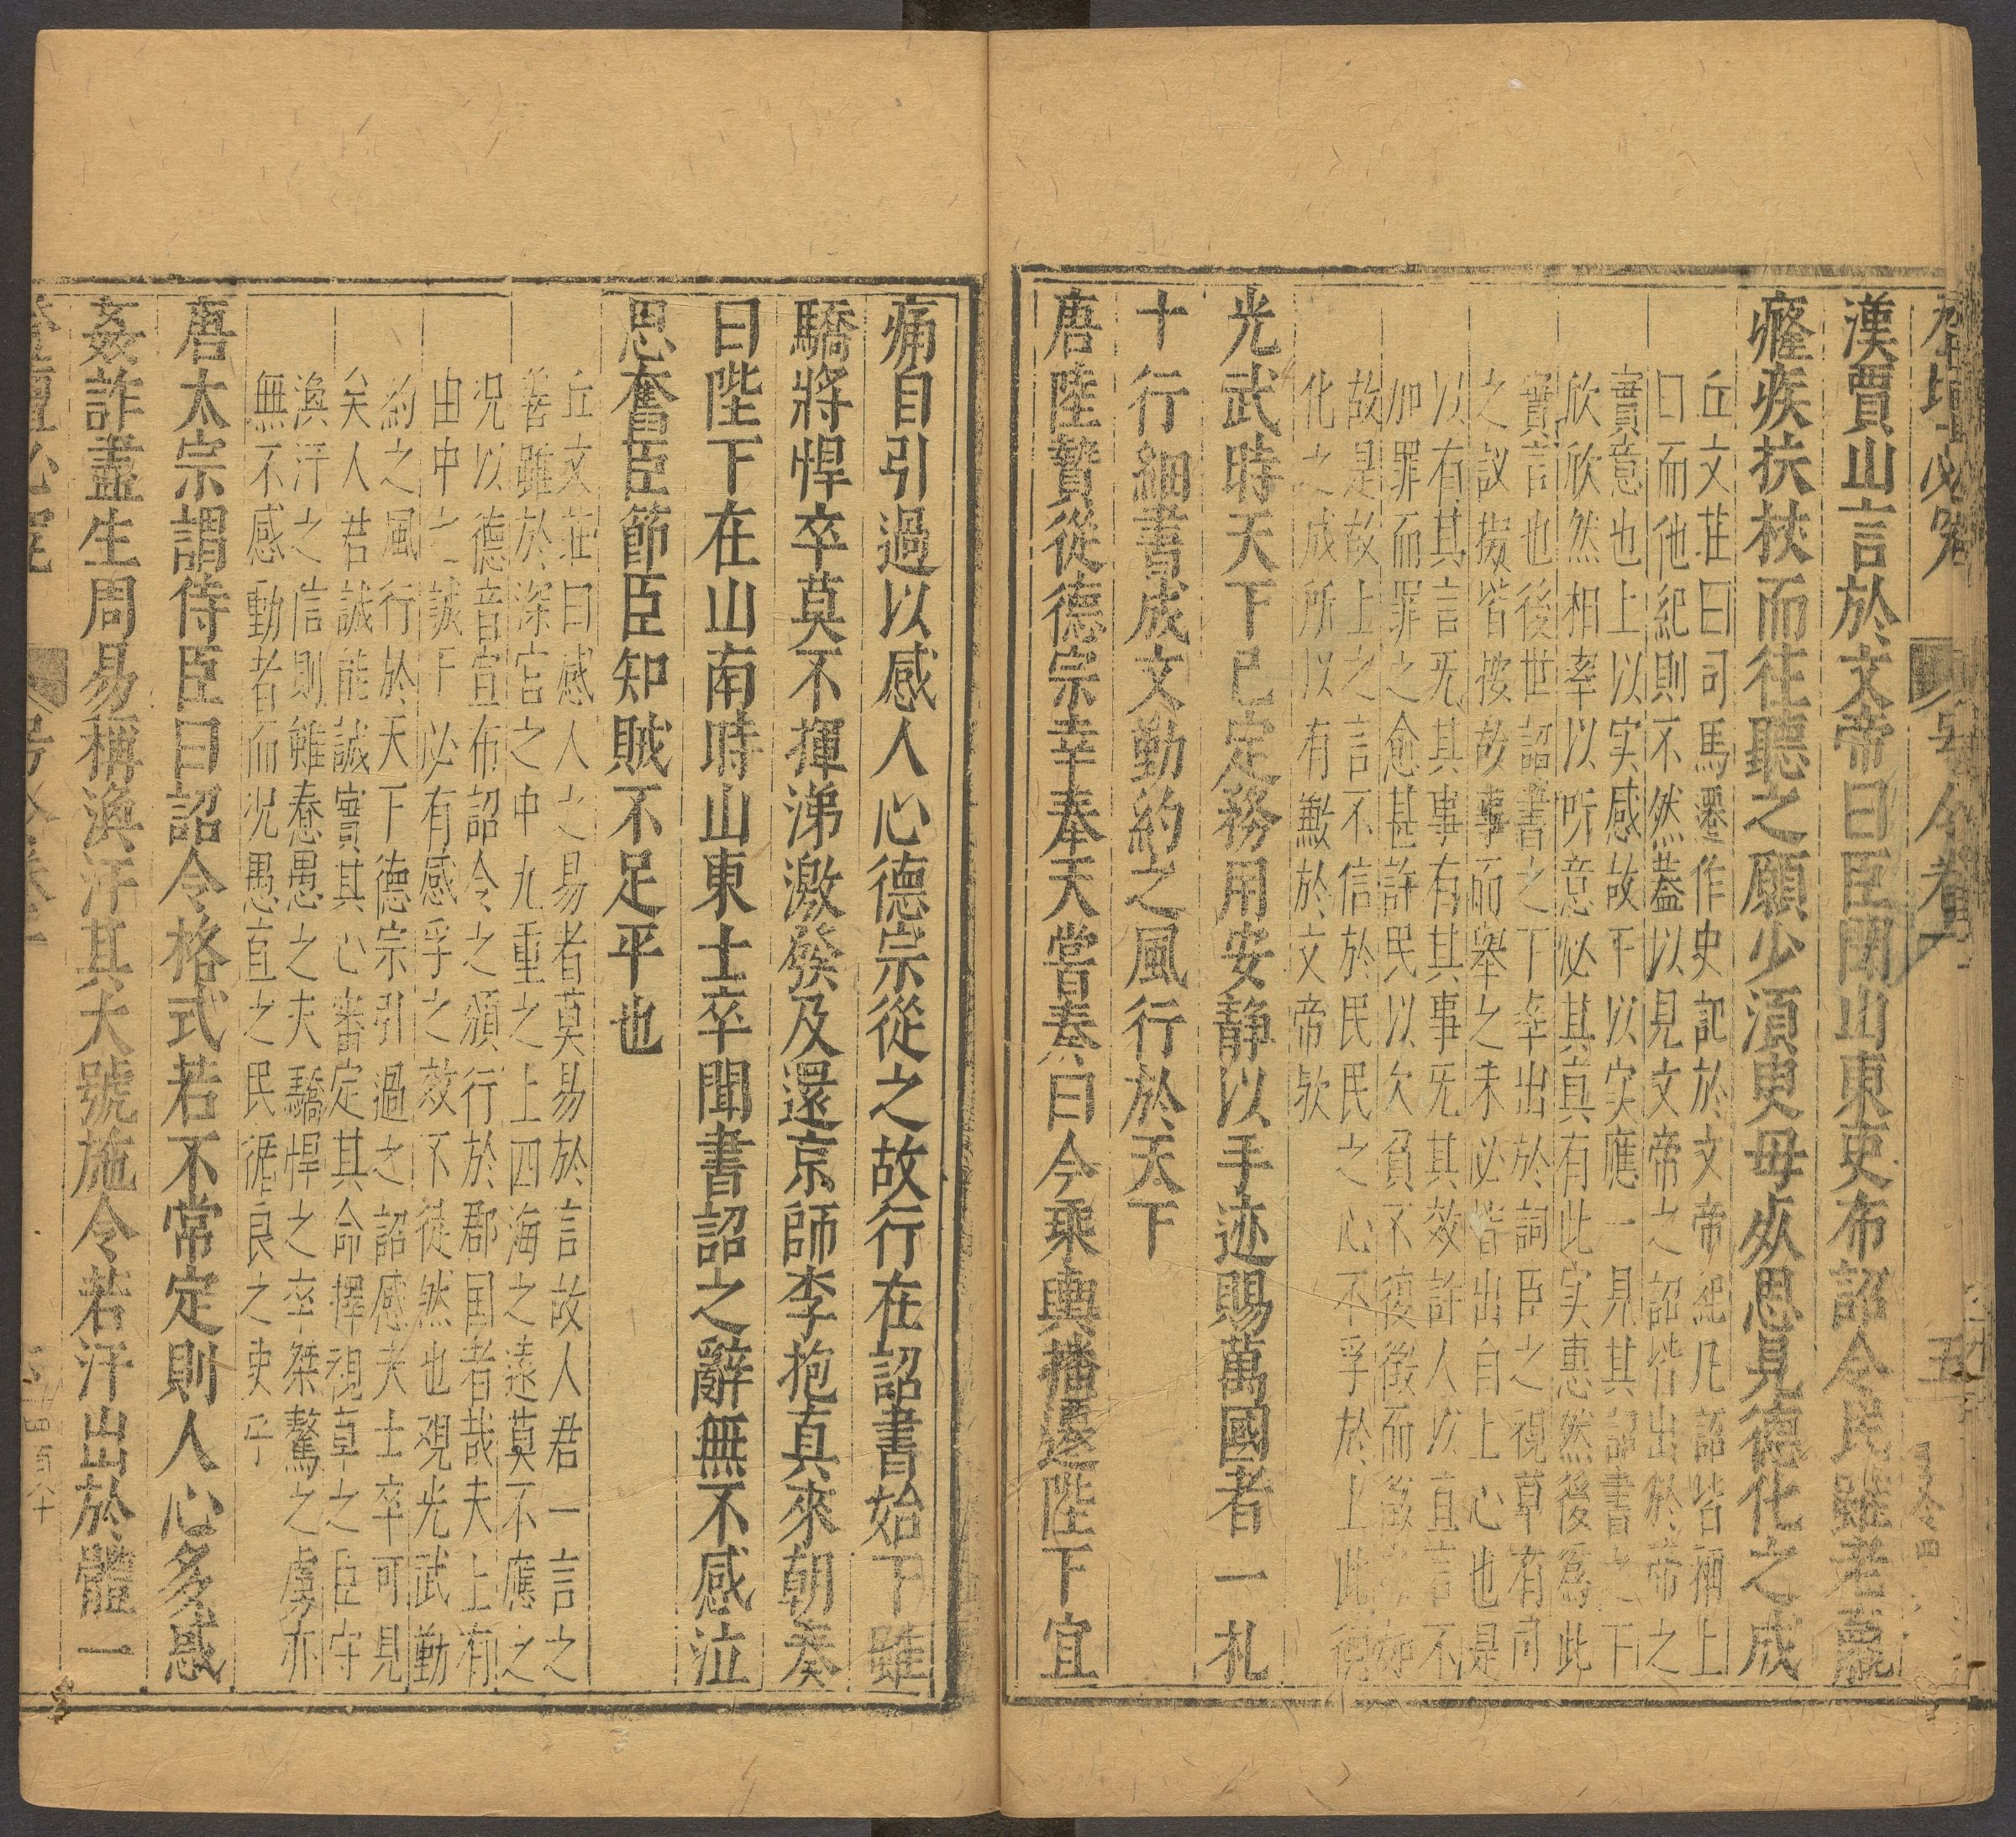 登壇必究
号令卷一
五
漢賈山言於文帝曰臣聞山東吏布詔令民雖老羸
癃疾扶杖而往聽之願少須臾毋死思見德化之成
丘文莊曰司馬遷作史記於文帝紀凡詔皆稱上
曰而他紀則不然蓋以見文帝之詔皆出於帝之
實意也上以实感故下以实應一見其詔書之下
欣欣然相率以听意必其真有此实惠然後爲此
實言也後世詔書之下率出於詞臣之視草有司
之议擬皆按故事而舉之未必皆出自上心也是
以有其言旡其事有其事旡其效許人以直言不
加罪而罪之愈甚許民以欠負不復徵而徵
故是故上之言不信於民民之心不孚於上此德
化之成所以有歉於文帝欤
光武時天下已定務用安静以手迹賜萬國者一札
十行細書成文勤約之風行於天下
唐陸贄從德宗幸奉天嘗奏曰今乘輿播遷陛下宜
痛自引過以感人心德宗從之故行在詔書始下雖
驕將悍卒莫不揮涕激發及還京師李抱真來朝奏
曰陛下在山南時山東士卒聞書詔之辭無不感泣
思奮臣節臣知賊不足平也
丘文莊曰感人之易者莫易於言故人君一言之
善雖於深宫之中九重之上四海之遠莫不應之
况以德音宣布詔令之頒行於郡国者哉夫上有
由中之誠下必有感孚之效不徒然也观光武勤
約之風行於天下德宗引過之詔感夫士卒可見
矣人君誠能誠實其心審定其命擇視草之臣守
渙汗之信則雖惷愚之夫驕悍之卒桀驁之虜亦
無不感動者而况愚直之民循良之吏乎
唐太宗謂侍臣曰詔令格式若不常定則人心多惑
姦詐盡生周易稱渙汗其大號施令若汗出於體一
登壇必究
号令卷一
四百八十